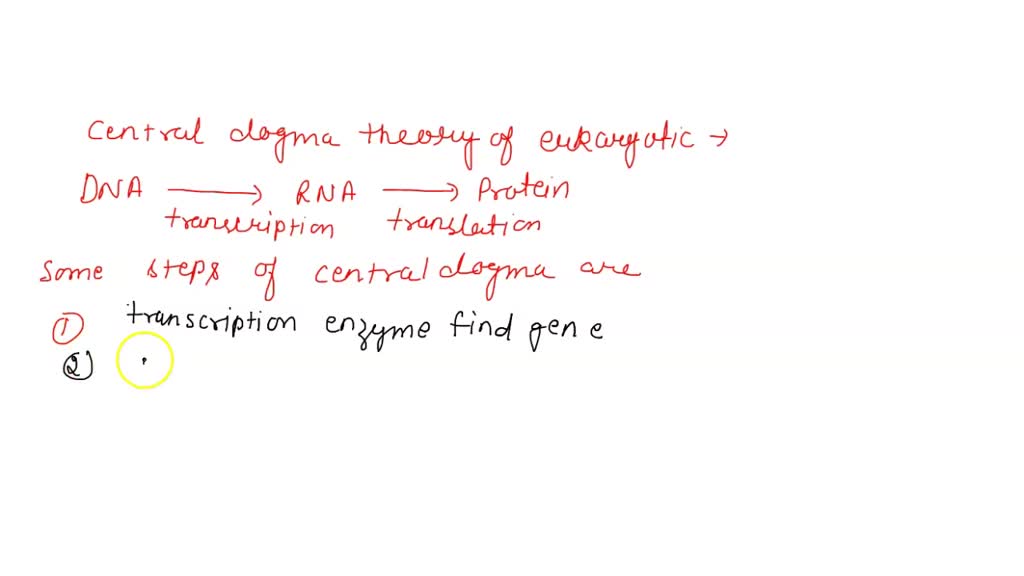 Central dogma theory of eukaryotic →
DNA → RNA → Protein
transcription translation
Some steps of central dogma are
① transcription enzyme find gene
②